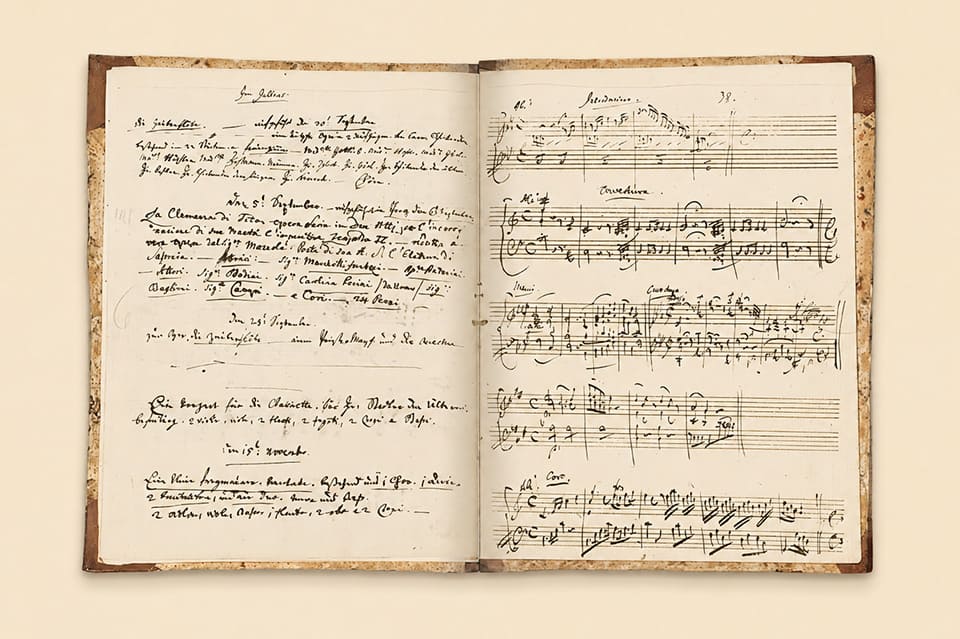 Im Jullius.
Die Zauberflöte. — aufgeführt den 30:t September.
— eine teutsche Oper in 2 Aufzügen. von Eman. Schikaneder.
bestehend in 22 Stücken. — Frauenzimmer. — Mad:selle Gottlieb. Mad:me Hofer. Mad:me Görl.
Mad:me Klöpfler. Mad:selle Hofmann. Männer. Hr: Schack. Hr: Görl. Hr: Schikaneder der ältere.
Hr: Kistler. Hr: Schikaneder der Jüngere. Hr: Nouseul. — Chöre.
Den 5:t September. — aufgeführt in Prag den 6:t September.
La Clemenza di Tito. opera Seria in Due Atti. per l'incoro-
nazione di sua Maestà l'imperatore Leopoldo II. — ridotta á
vera opera dal Sig:re Mazzolá. Poeta di sua A: S: l'Elettore di
Sassonia. — Attrici: — Sig:ra Marchetti fantozi. — Sig:ra Antonini.
— Attori. Sig:re Bedini. Sig:ra Carolina Perini /da uomo/ Sig:re
Baglioni. Sig:re Campi. — e Cori. — 24 Pezzi.
Den 28:t September.
zur Oper. die Zauberflöte — einen Priestermarsch und die Ouverture
Ein konzert für die Clarinette. für Hr: Stadler den Ältern.
begleitung. 2 violin, viole, 2 flauti, 2 fagotti, 2 Corni e Bassi.
den 15:t Novemb:
Eine kleine freymaurer-kantate. bestehend aus 1 Chor. 1 Arie.
2 Recitativen, und ein Duo. tenor und Bass.
2 violini, viola, Basso, 1 flauto, 2 oboe e 2 Corni. —
All:o Introduzione: 38.
All:o Overtura.
Coro.